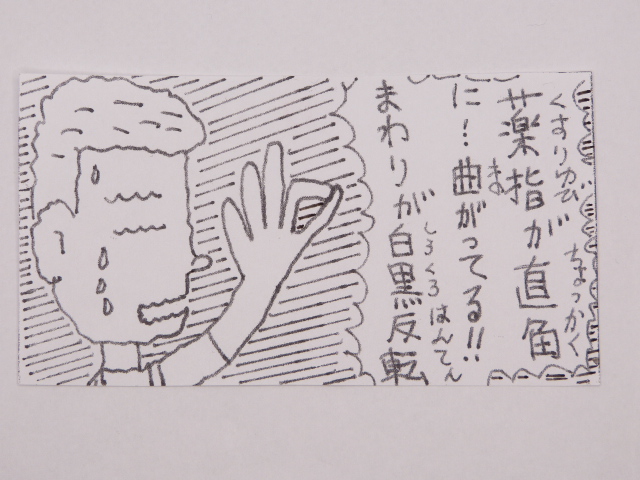 薬指が直角
くすりゆび ちょっかく
に！曲がってる!!
ま
まわりが白黒反転
しろくろはんてん